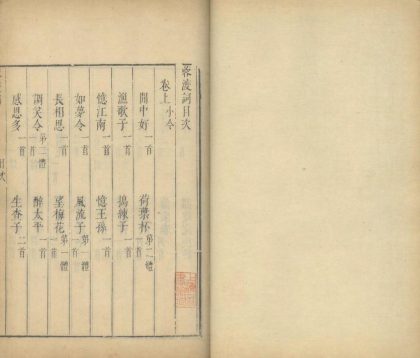 蓉渡詞目次
卷上 小令
閒中好 一首 荷葉杯 第二體
漁歌子 一首 搗練子 一首
憶江南 一首 憶王孫 一首
如夢令 一首 風流子 第一體 一首
長相思 一首 望梅花 第一體 一首
調笑令 第二體 一首 醉太平 一首
感恩多 一首 生查子 二首
目次